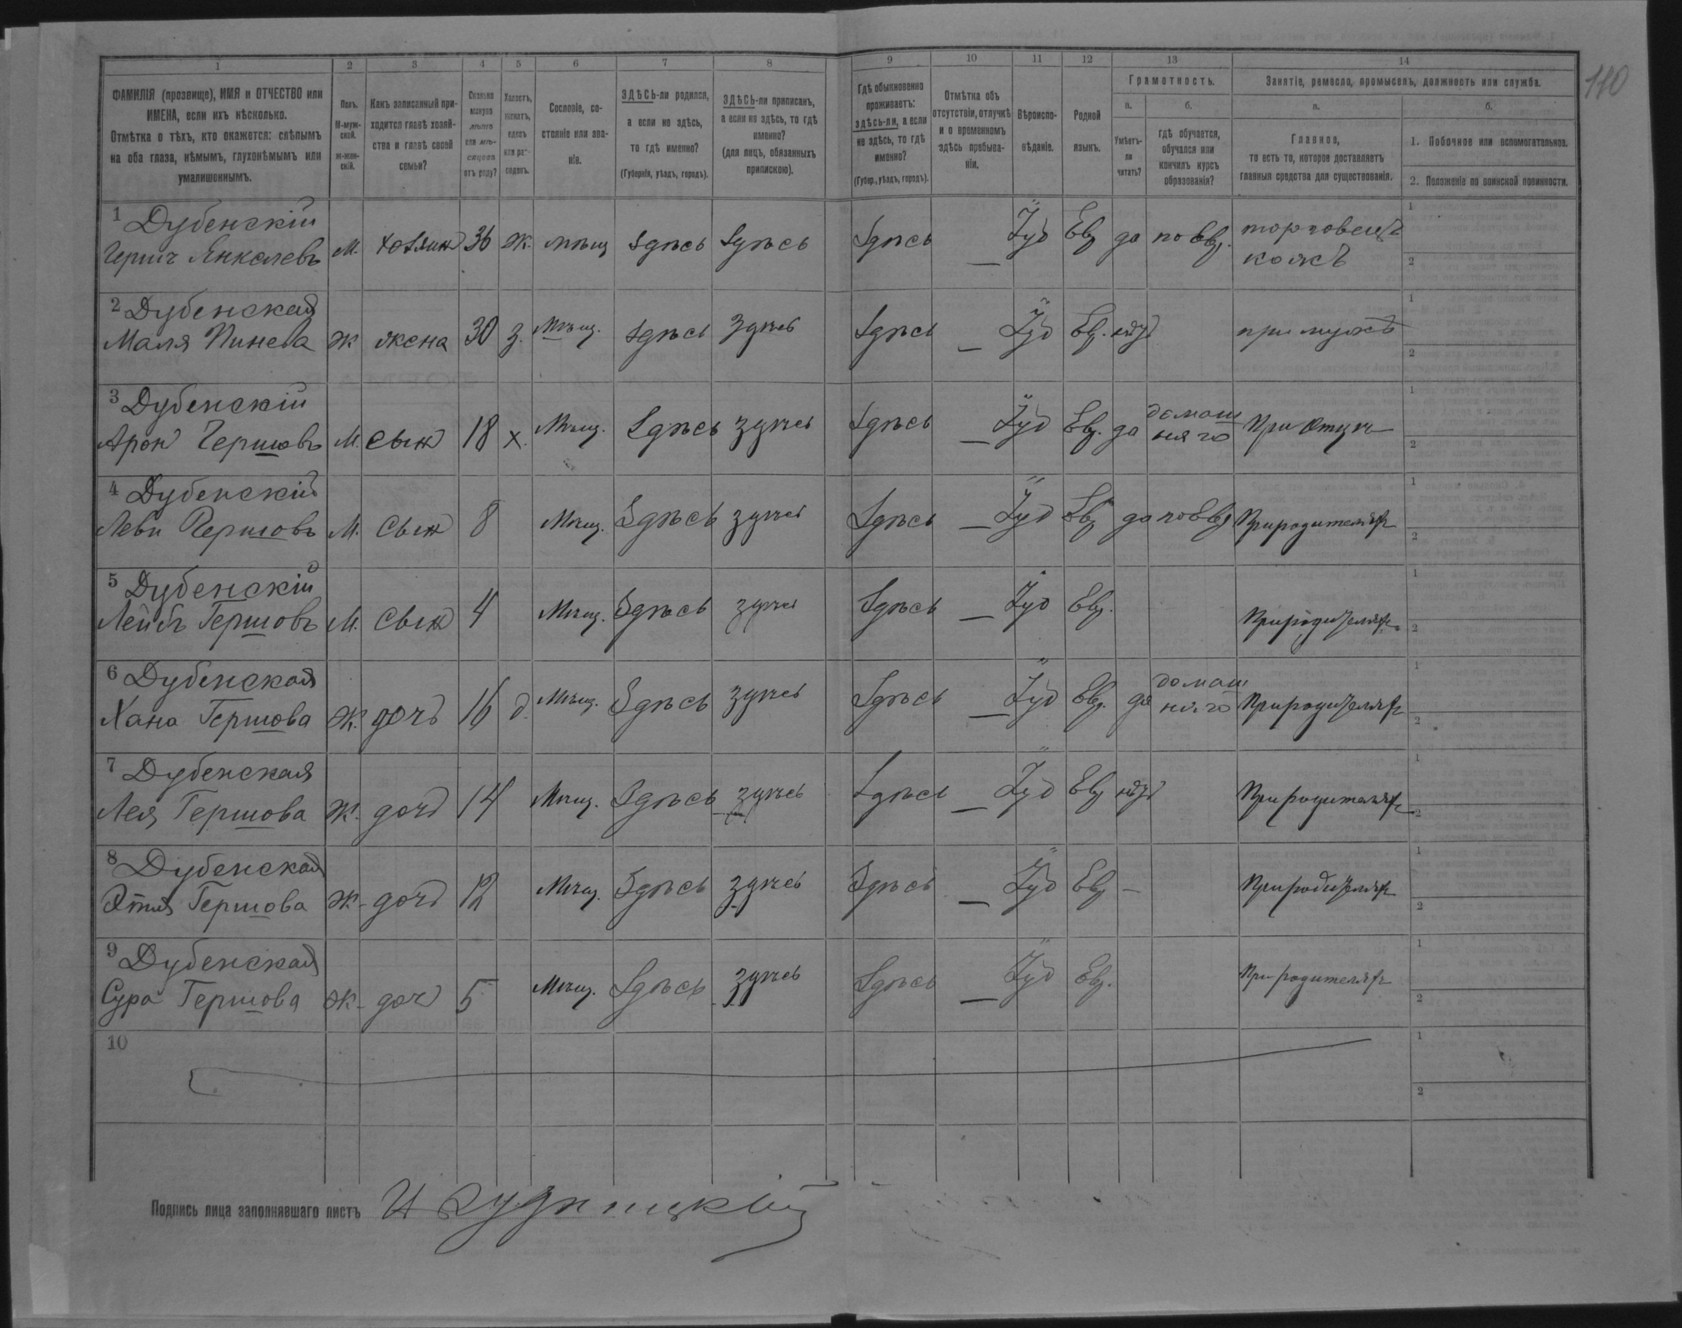 110
1 2 3 4 5 6 7 8 9 10 11 12 13 14
ФАМИЛІЯ (прозвище), ИМЯ и ОТЧЕСТВО или
ИМЕНА, если ихъ нѣсколько.
Отмѣтка о тѣхъ, кто окажется: слѣпымъ
на оба глаза, нѣмымъ, глухонѣмымъ или
умалишеннымъ.
Полъ.
М-муж-
ской.
ж-жен-
скій.
Какъ записанный при-
ходится главѣ хозяй-
ства и главѣ своей
семьи?
Сколько
минуло
лѣтъ
или мѣ-
сяцевъ
отъ роду?
Холостъ,
женатъ,
вдовъ
или раз-
веденъ.
Сословіе, со-
стояніе или зва-
ніе.
ЗДѢСЬ-ли родился,
а если не здѣсь,
то гдѣ именно?
(Губернія, уѣздъ, городъ).
ЗДѢСЬ-ли приписанъ,
а если не здѣсь, то гдѣ
именно?
(для лицъ, обязанныхъ
припискою).
Гдѣ обыкновенно
проживаетъ:
здѣсь-ли, а если
не здѣсь, то гдѣ
именно?
(Губер., уѣздъ, городъ).
Отмѣтка объ
отсутствіи, отлучкѣ
и о временномъ
здѣсь пребыва-
ніи.
Вѣроиспо-
вѣданіе.
Родной
языкъ.
Грамотность.
а. б.
Умѣетъ-
ли
читать?
гдѣ обучается,
обучался или
кончилъ курсъ
образованія?
Занятіе, ремесло, промыселъ, должность или служба.
а. б.
Главное,
то есть то, которое доставляетъ
главныя средства для существованія.
1. Побочное или вспомогательное.
2. Положеніе по воинской повинности.
1 Дубенскій
Гершъ Янкелевъ М. хозяин 36 ж. мѣщ здѣсь здѣсь здѣсь — Іуд Евр да по Евр. торговецъ
2 Дубенская
Маля Пинева ж жена 30 з. Мѣщ. здѣсь здѣсь здѣсь — Іуд Евр. при мужѣ
3 Дубенскій
Арон Гершовъ М. сын 18 х. Мѣщ. здѣсь здѣсь здѣсь — Іуд Евр. да домаш
няго При отцѣ
4 Дубенскій
Леви Гершовъ М. сын 8 Мѣщ. здѣсь здѣсь здѣсь — Іуд Евр да по Евр При родителяхъ
5 Дубенскій
Лейбъ Гершовъ М. сын 4 Мѣщ. здѣсь здѣсь здѣсь — Іуд Евр. При родителяхъ
6 Дубенская
Хана Гершова Ж. дочь 16 д. Мѣщ. здѣсь здѣсь здѣсь — Іуд Евр. да домаш
няго При родителяхъ
7 Дубенская
Лея Гершова Ж. доч 14 Мѣщ. здѣсь здѣсь здѣсь — Іуд Евр При родителяхъ
8 Дубенская
Гершова Ж. доч 12 Мѣщ. здѣсь здѣсь здѣсь — Іуд Евр — При родителяхъ
9 Дубенская
Сура Гершова Ж. доч 5 Мѣщ. здѣсь здѣсь здѣсь — Іуд Евр. При родителяхъ
10
Подпись лица заполнявшаго листъ